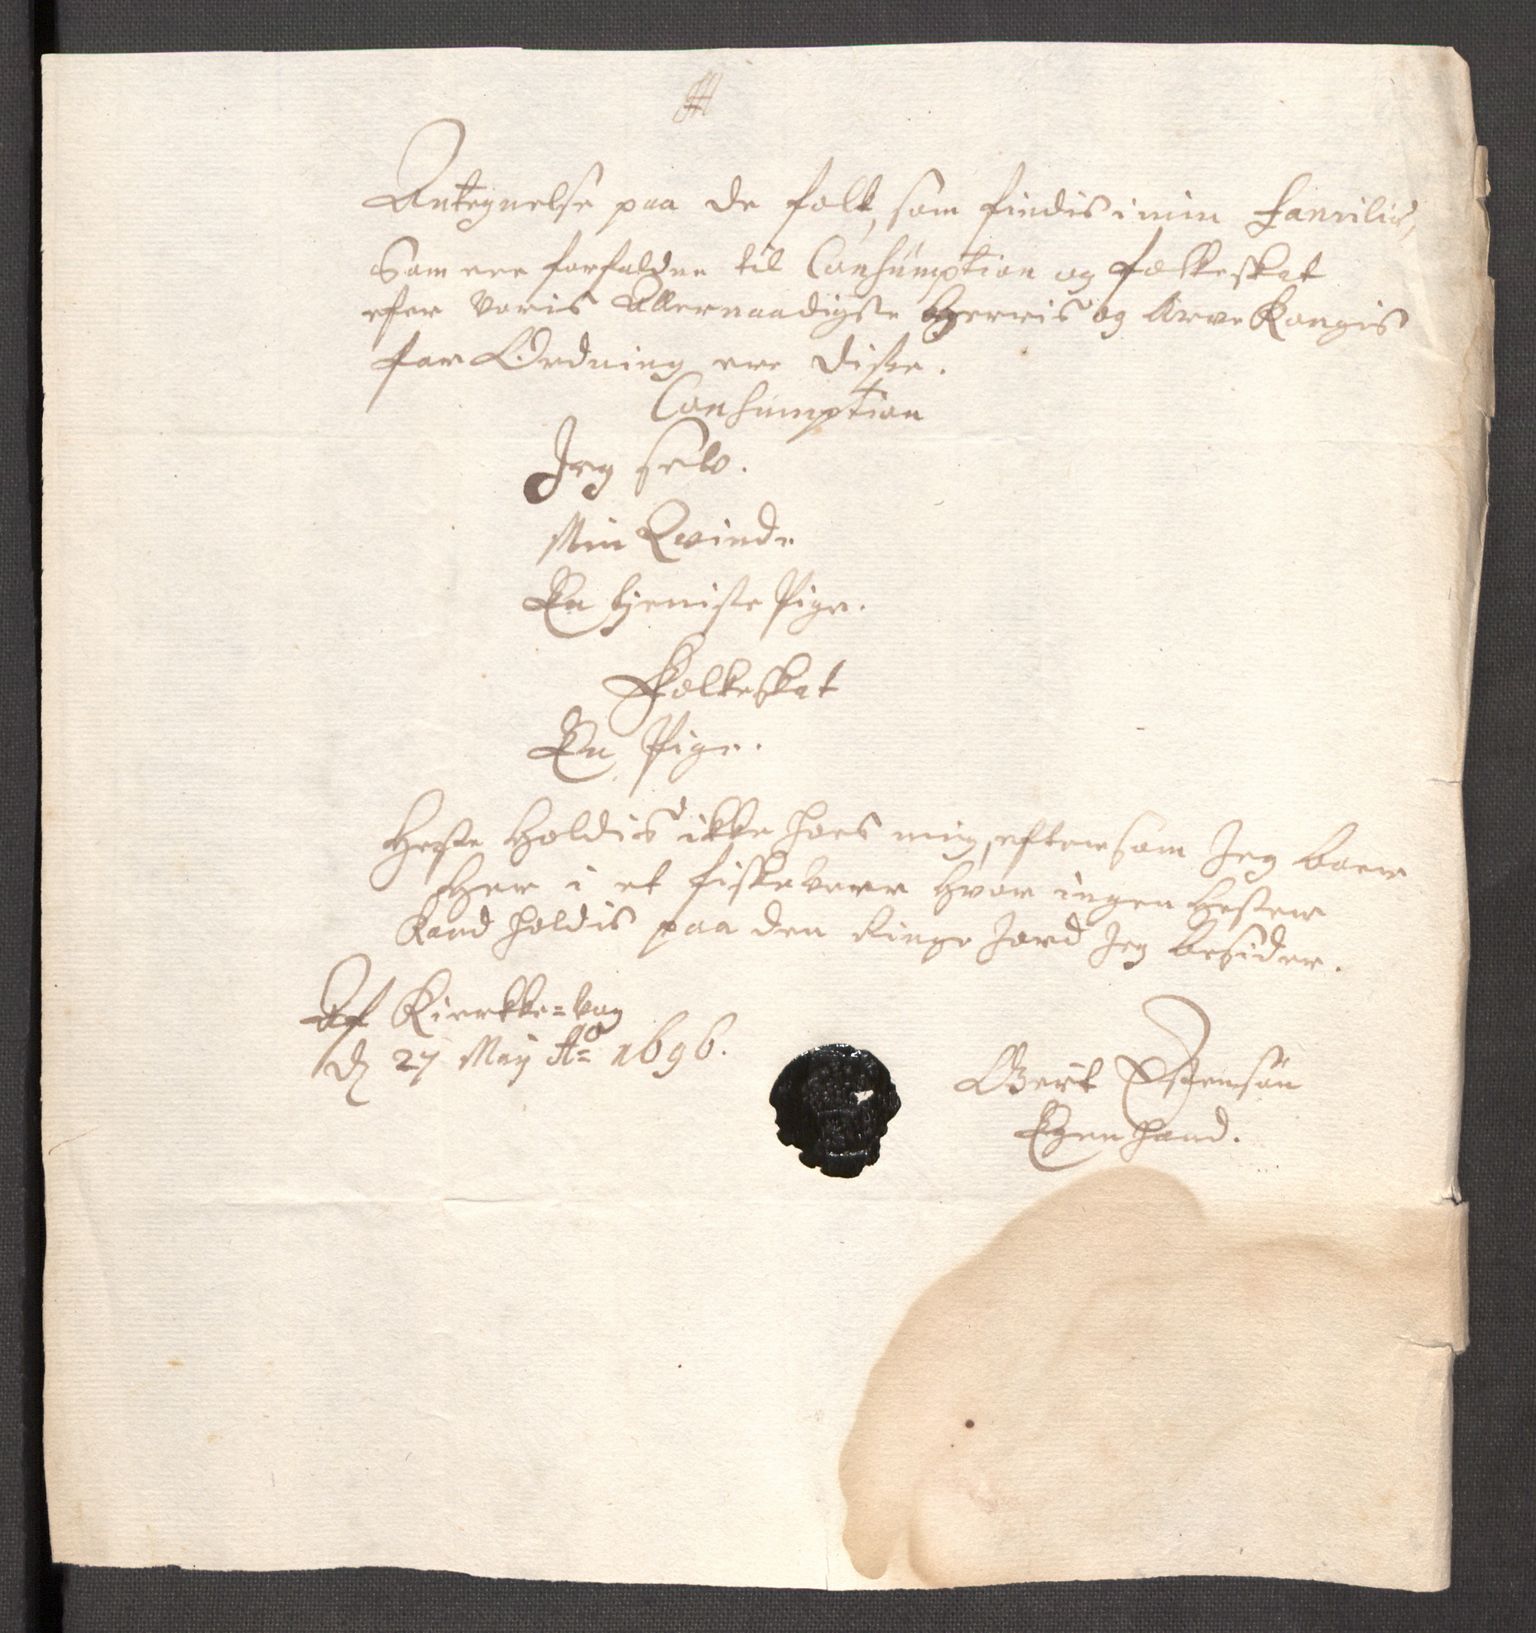 Antegnelse paa de folk, som findis i min Familie,
Som ere forfalden til Consumption og folkeskat
efter Voris Allernaadigste Herris og Arve Kongis
for Ordning ere disse.
Consumption
Jeg selv.
Min Qvinde
En tjeniste Pige.
Folkeskat
En Pige.
Heste Holdis ikke hoes mig, eftersom Jeg boer
Her i et fiskevær Hvor ingen Hester
Kand holdis paa den Ringe Jord Jeg besider.
Af Kierkke=vog
d 27 Maij Ao 1696.
Gert Ostensøn
Egen Hand.